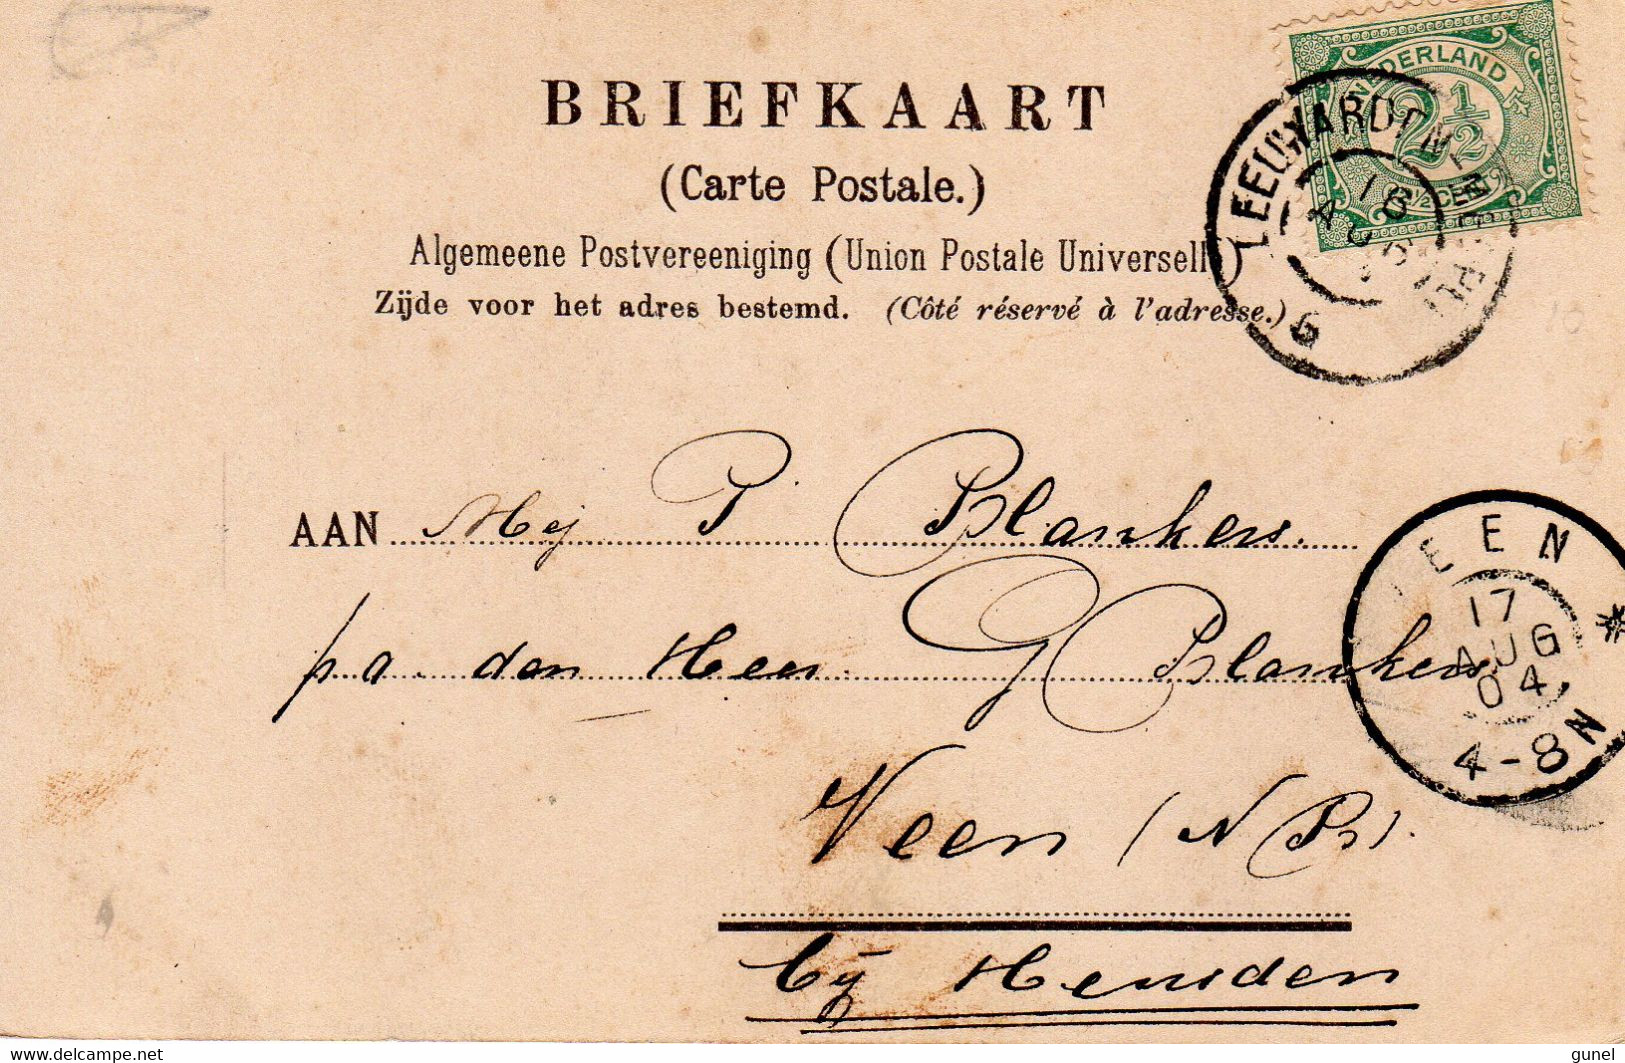 NEDERLAND
2½
2½ CENT
BRIEFKAART
(Carte Postale.)
Algemeene Postvereeniging (Union Postale Universelle)
Zijde voor het adres bestemd. (Côté réservé à l'adresse.)
LEEUWARDEN
AAN Mej P Blankers.
p.a. den Heer G Blankers
Veen (N Br).
bij Heusden
EEN
17
AUG
04
4-8N
www.delcampe.net
gunel